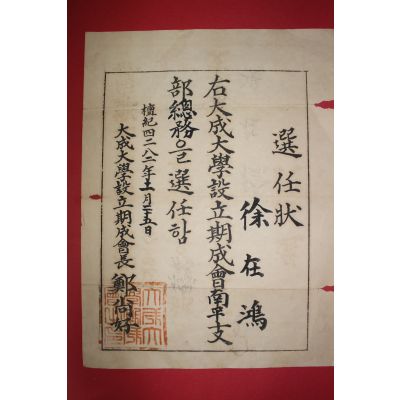 選任狀
徐在鴻
右大成大學設立期成會南平支
部總務으로選任함
檀紀四二八二年十一月二十五日
大成大學設立期成會長 鄭尙好